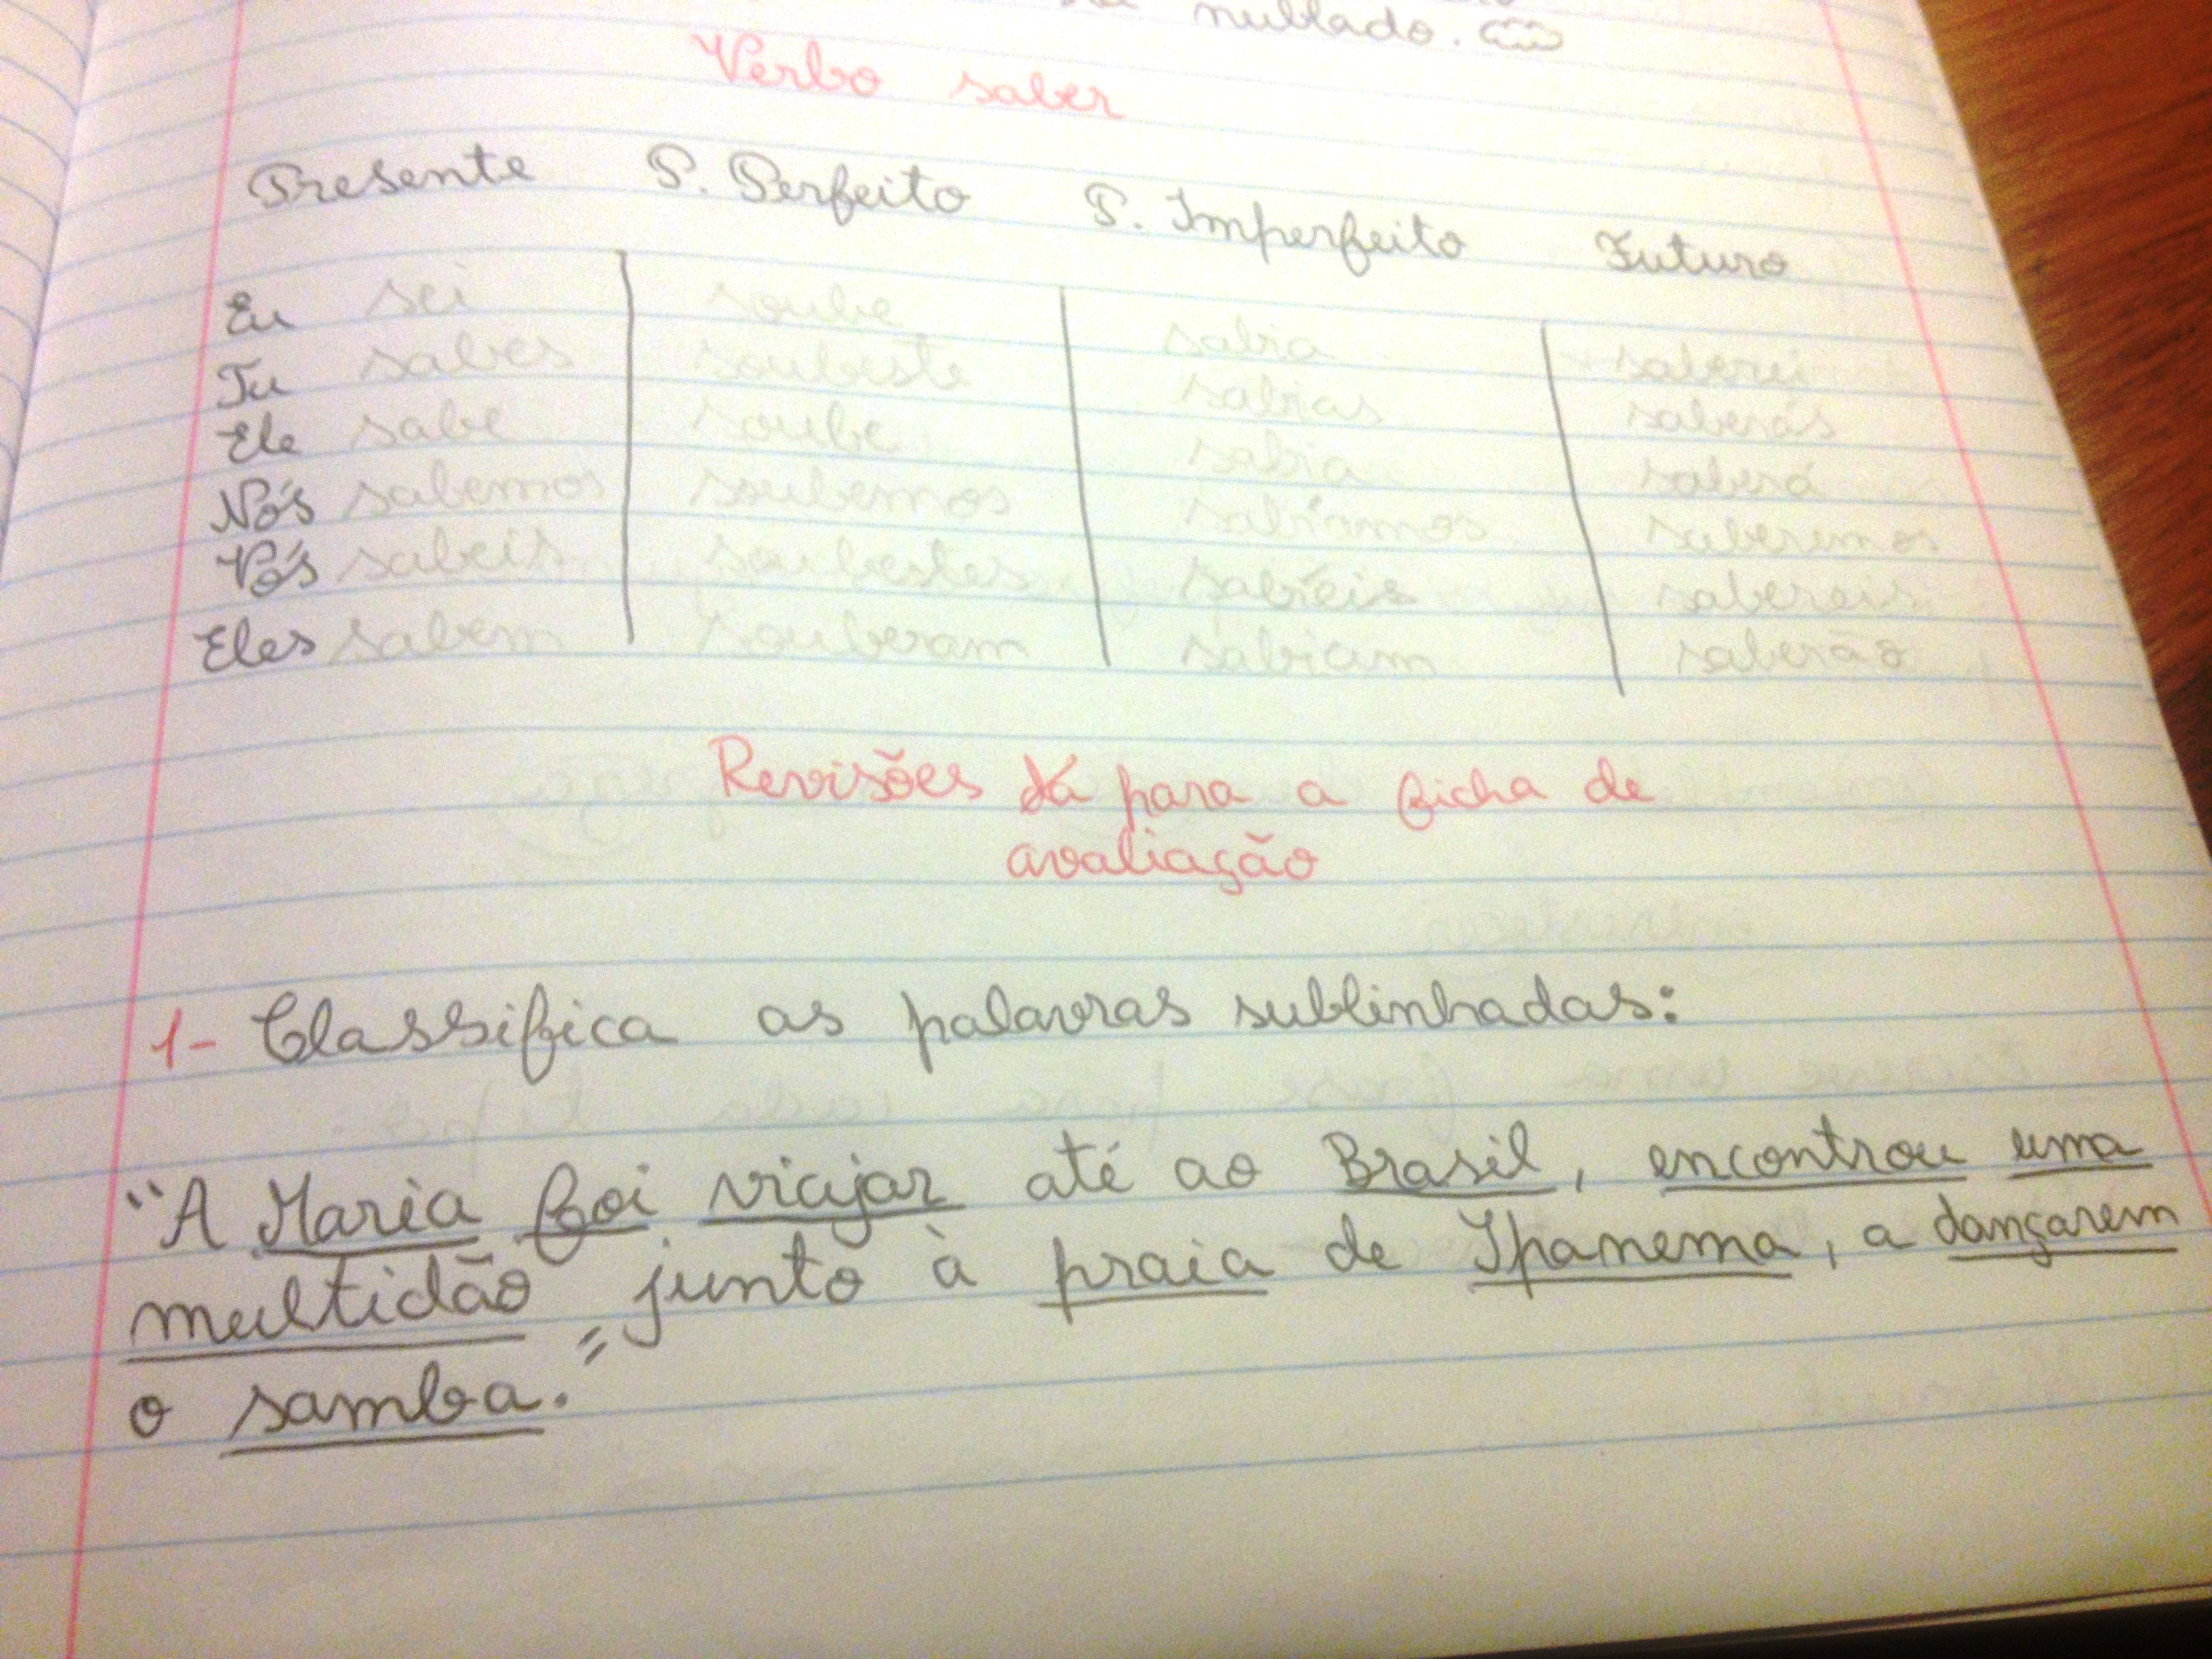 nublado.
Verbo saber
Presente P. Perfeito P. Imperfeito Futuro
Eu sei soube sabia saberei
Tu sabes soubeste sabias saberás
Ele sabe soube sabia saberá
Nós sabemos soubemos sabíamos saberemos
Vós sabeis soubestes sabíeis sabereis
Eles sabem souberam sabiam saberão
Revisões para a ficha de
avaliação
1- Classifica as palavras sublinhadas:
"A Maria foi viajar até ao Brasil, encontrou uma
multidão junto à praia de Ipanema, a dançarem
o samba."